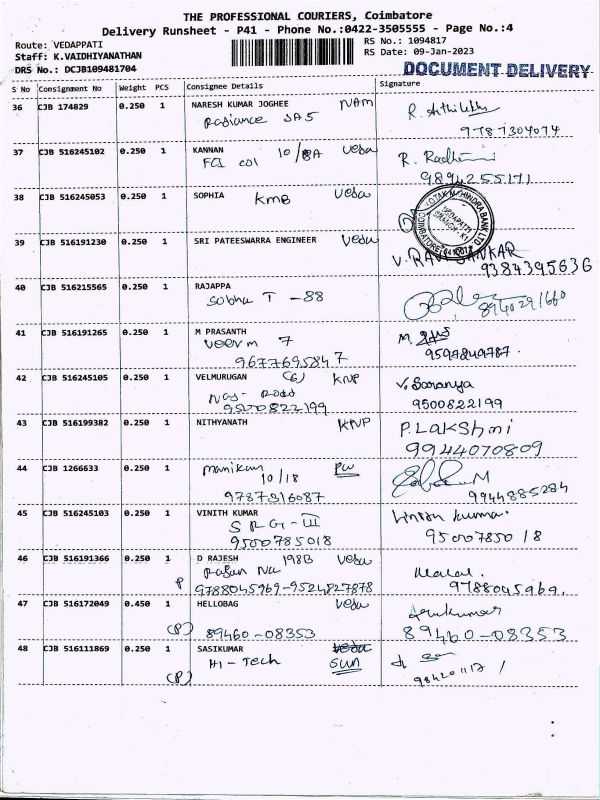 THE PROFESSIONAL COURIERS, Coimbatore
Delivery Runsheet - P41 - Phone No.:0422-3505555 - Page No.:4
Route: VEDAPPATI
Staff: K.VAIDHIYANATHAN
DRS No.: DCJB109481704
RS No.: 1094817
RS Date: 09-Jan-2023
DOCUMENT DELIVERY
S No Consignment No Weight PCS Consignee Details Signature
36 CJB 174829 0.250 1 NARESH KUMAR JOGHEE NAM
Radiance SA5
9787304074
37 CJB 516245102 0.250 1 KANNAN 10/8A Veda
FCI col R.
9894255171
38 CJB 516245053 0.250 1 SOPHIA KMB Veda
KOTAK MAHINDRA BANK LTD
COIMBATORE
39 CJB 516191230 0.250 1 SRI PATEESWARRA ENGINEER Veda
V. RAVI SANKAR
9384395636
40 CJB 516215565 0.250 1 RAJAPPA
Sobha T - 88
8940291660
41 CJB 516191265 0.250 1 M PRASANTH
Veerm 7 M.
9677695847 9597849787.
42 CJB 516245105 0.250 1 VELMURUGAN KNP
V. Saranya
9500822199 9500822199
43 CJB 516199382 0.250 1 NITHYANATH KNP P. LAKShmi
9944070809
44 CJB 1266633 0.250 1 Manikan PW
10/18 M
9787316087 9944885284
45 CJB 516245103 0.250 1 VINITH KUMAR
SRG-III kumar.
9500785018 9500785018
46 CJB 516191366 0.250 1 D RAJESH 198B Veda
Rajan Na
P 9788045969-9524827878 9788045969.
47 CJB 516172049 0.450 1 HELLOBAG Veda
Arunkumar
(P) 89460-08353 89460-08353
48 CJB 516111869 0.250 1 SASIKUMAR Veda
Hi-Tech Sun
(P) 984201117